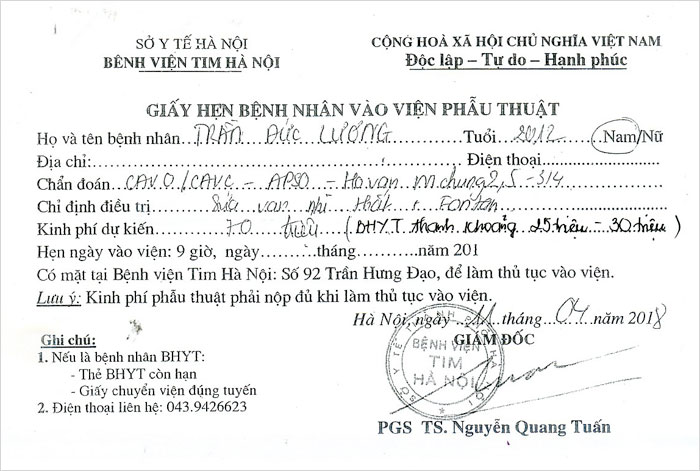 SỞ Y TẾ HÀ NỘI
BỆNH VIỆN TIM HÀ NỘI
CỘNG HOÀ XÃ HỘI CHỦ NGHĨA VIỆT NAM
Độc lập – Tự do – Hạnh phúc
GIẤY HẸN BỆNH NHÂN VÀO VIỆN PHẪU THUẬT
Họ và tên bệnh nhân TRẦN ĐỨC LƯƠNG Tuổi 2012 Nam/Nữ
Địa chỉ: Điện thoại
Chẩn đoán CAVO/CAVC – APSO – Hở van chung 2,5 - 3/4
Chỉ định điều trị Sửa van nhĩ thất + Fontan
Kinh phí dự kiến 70 triệu (BHYT thanh khoảng 25 triệu – 30 triệu)
Hẹn ngày vào viện: 9 giờ, ngày tháng năm 201
Có mặt tại Bệnh viện Tim Hà Nội: Số 92 Trần Hưng Đạo, để làm thủ tục vào viện.
Lưu ý: Kinh phí phẫu thuật phải nộp đủ khi làm thủ tục vào viện.
Hà Nội, ngày 11 tháng 04 năm 2018
GIÁM ĐỐC
SỞ Y TẾ T.P HÀ NỘI
BỆNH VIỆN
TIM
HÀ NỘI
PGS TS. Nguyễn Quang Tuấn
Ghi chú:
1. Nếu là bệnh nhân BHYT:
- Thẻ BHYT còn hạn
- Giấy chuyển viện đúng tuyến
2. Điện thoại liên hệ: 043.9426623